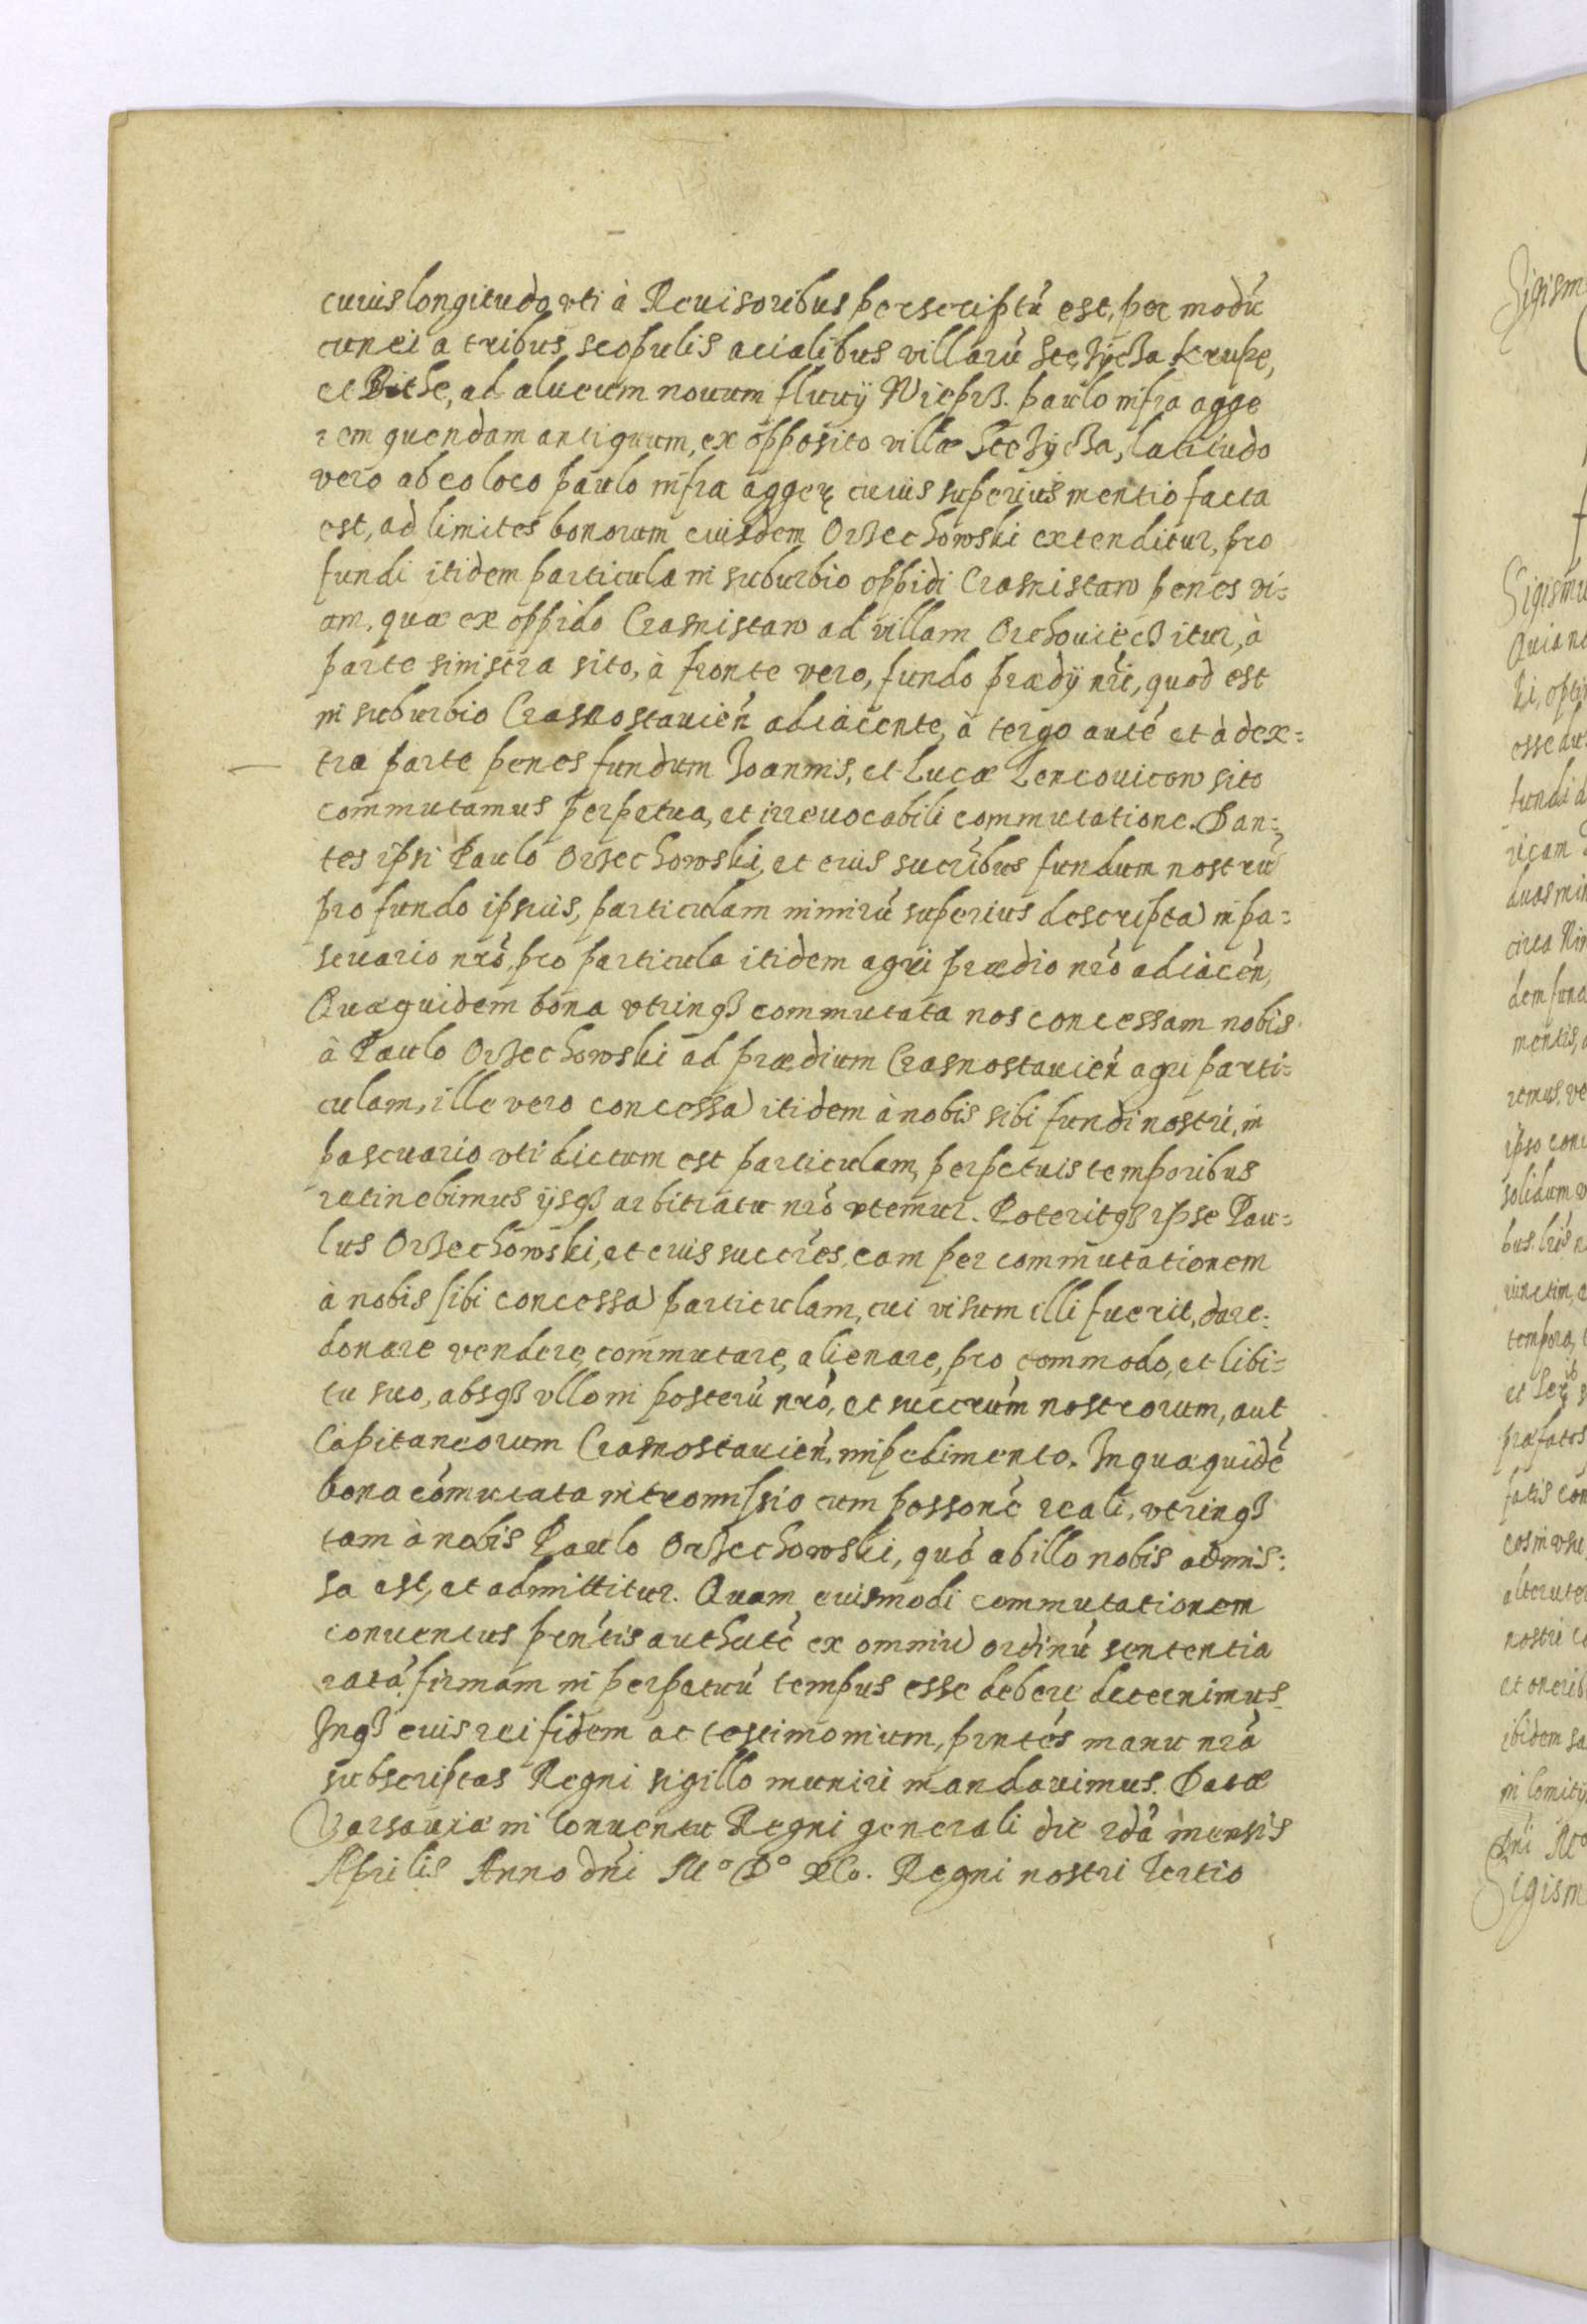 cuius longitudo, vti à Reuisoribus perscriptũ est, per modũ
cunei a tribus scopulis acialibus villarũ Stężycza Krupe,
et Bithe, ad alueum nouum fluuij Wieprz. paulo infra agge
rem quendam antiquum, ex opposito villæ Stężycza, latitudo
vero ab eo loco paulo infra aggerẽ cuius superius mentio facta
est, ad limites bonorum eiusdem Orzechowski extenditur, pro
fundi itidem particula in suburbio oppidi Crasnistaw penes vi=
am, quæ ex oppido Crasnistaw ad villam Orchouiecz itur, à
parte sinistra sito, à fronte vero, fundo prædij nři, quod est
in suburbio Crasnostauień adiacente, à tergo autẽ et à dex=
tra parte penes fundum Joannis, et Lucæ Lencouicow sito
commutamus perpetua, et irreuocabili commutatione. Dan=
tes ipsi Paulo Orzechowski, et eius sucribus fundum nostrũ
pro fundo ipsius, particulam nimirũ superius descriptã in pa=
scuario nrõ, pro particula itidem agri prædio nrõ adiaceń,
Quæquidem bona vtrinqȝ commutata nos concessam nobis
à Paulo Orzechowski ad prædium Crasnostauień agri parti=
culam, ille vero concessã itidem à nobis sibi fundi nostri, in
pascuario vti dictum est particulam, perpetuis temporibus
retinebimus ijsqȝ arbitratu nrõ vtemur. Poteritqȝ ipse Pau=
lus Orzechowski, et eius succres, eam per commutationem
à nobis sibi concessã particulam, cui visum illi fuerit, dare.
donare vendere, commutare, alienare, pro commodo, et libi=
tu suo, absqȝ vllo in posterũ nrõ, et succrũm nostrorum, aut
Capitaneorum Crasnostauień, impedimento. In quæquidẽ
bona cõmutata intromissio cum possonẽ reali, vtrinqȝ
tam à nobis Paulo Orzechowski, quã ab illo nobis admis:
sa est, et admittitur. Quam eiusmodi commutationem
conuentus pẽntis authtẽ ex omniũ ordinũ sententia
ratã, firmam in perpetuũ tempus esse debere decernimus.
Inqȝ eius rei fidem ac testimonium, prntẽs manu nrã
subscriptas Regni sigillo muniri mandauimus. Datæ
Varsauiæ in Conuentu Regni generali die 2dã mensis
Aprilis Anno dñi Mº Dº XCo. Regni nostri Tertio